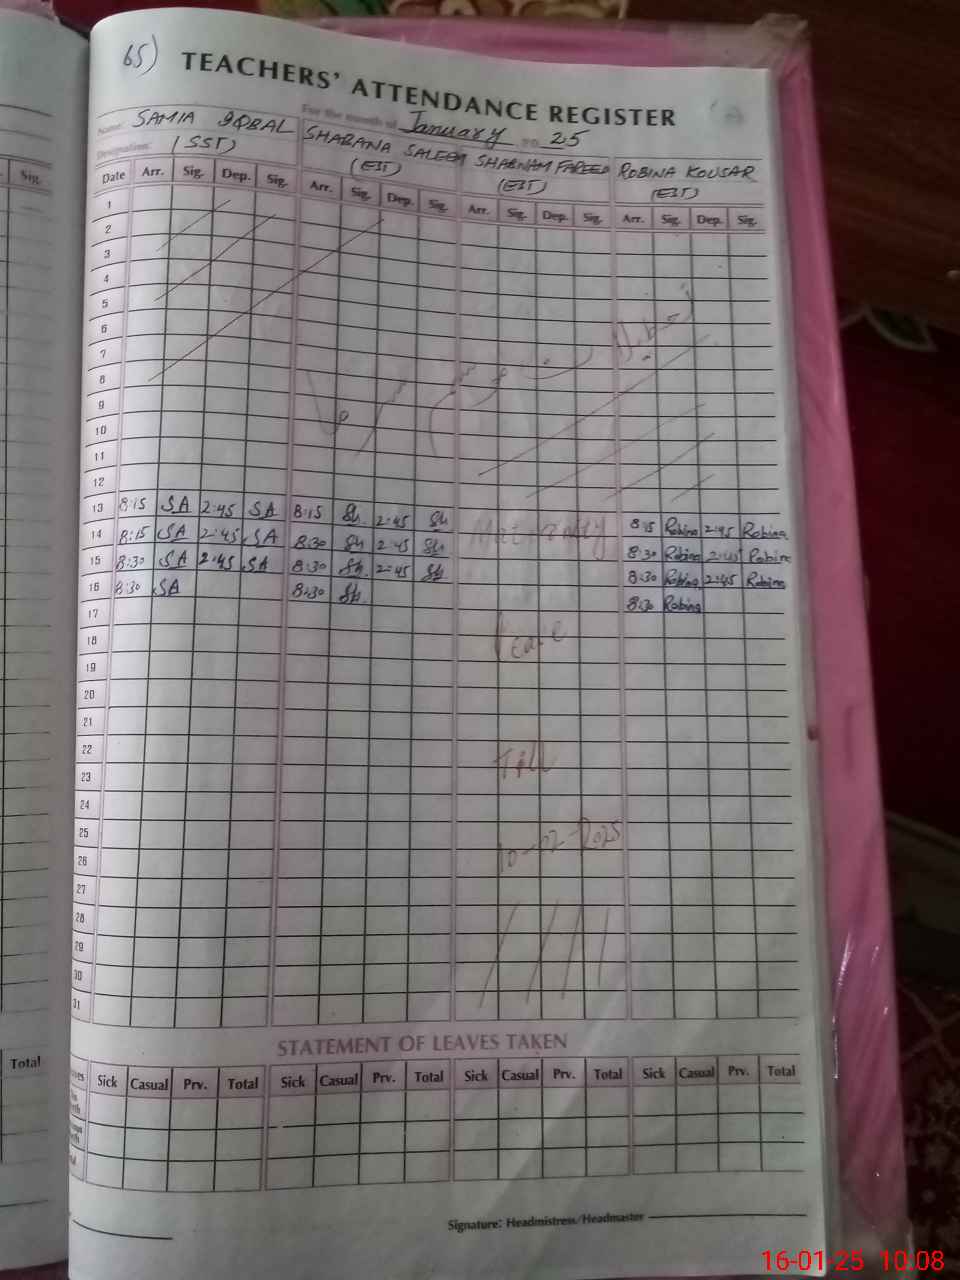 65)
TEACHERS' ATTENDANCE REGISTER
Name: SAMIA IQBAL For the month of January 20 25
SHABANA SALEEM SHABNAM FAREED ROBINA KOUSAR
Designation: (SST) (EST) (EST) (EST)
Sig.
Date Arr. Sig. Dep. Sig. Arr. Sig. Dep. Sig. Arr. Sig. Dep. Sig. Arr. Sig. Dep. Sig.
1
2
3
4
5
6
7
8
9
10
11
12
13 8:15 SA 2:45 SA 8:15 Sh. 2:45 Sh 8:15 Robina 2:45 Robina
14 8:15 SA 2:45 SA 8:30 Sh 2:45 Sh Maternity 8:30 Robina 2:45 Robina
15 8:30 SA 2:45 SA 8:30 Sh. 2:45 Sh 8:30 Robina 2:45 Robina
16 8:30 SA 8:30 Sh. 8:30 Robina
17
18 Leave
19
20
21
22
23 Till
24
25
26 10-02-2025
27
28
29
30
31
STATEMENT OF LEAVES TAKEN
Total
Sick Casual Prv. Total Sick Casual Prv. Total Sick Casual Prv. Total Sick Casual Prv. Total
Signature: Headmistress/Headmaster
16-01-25 10.08